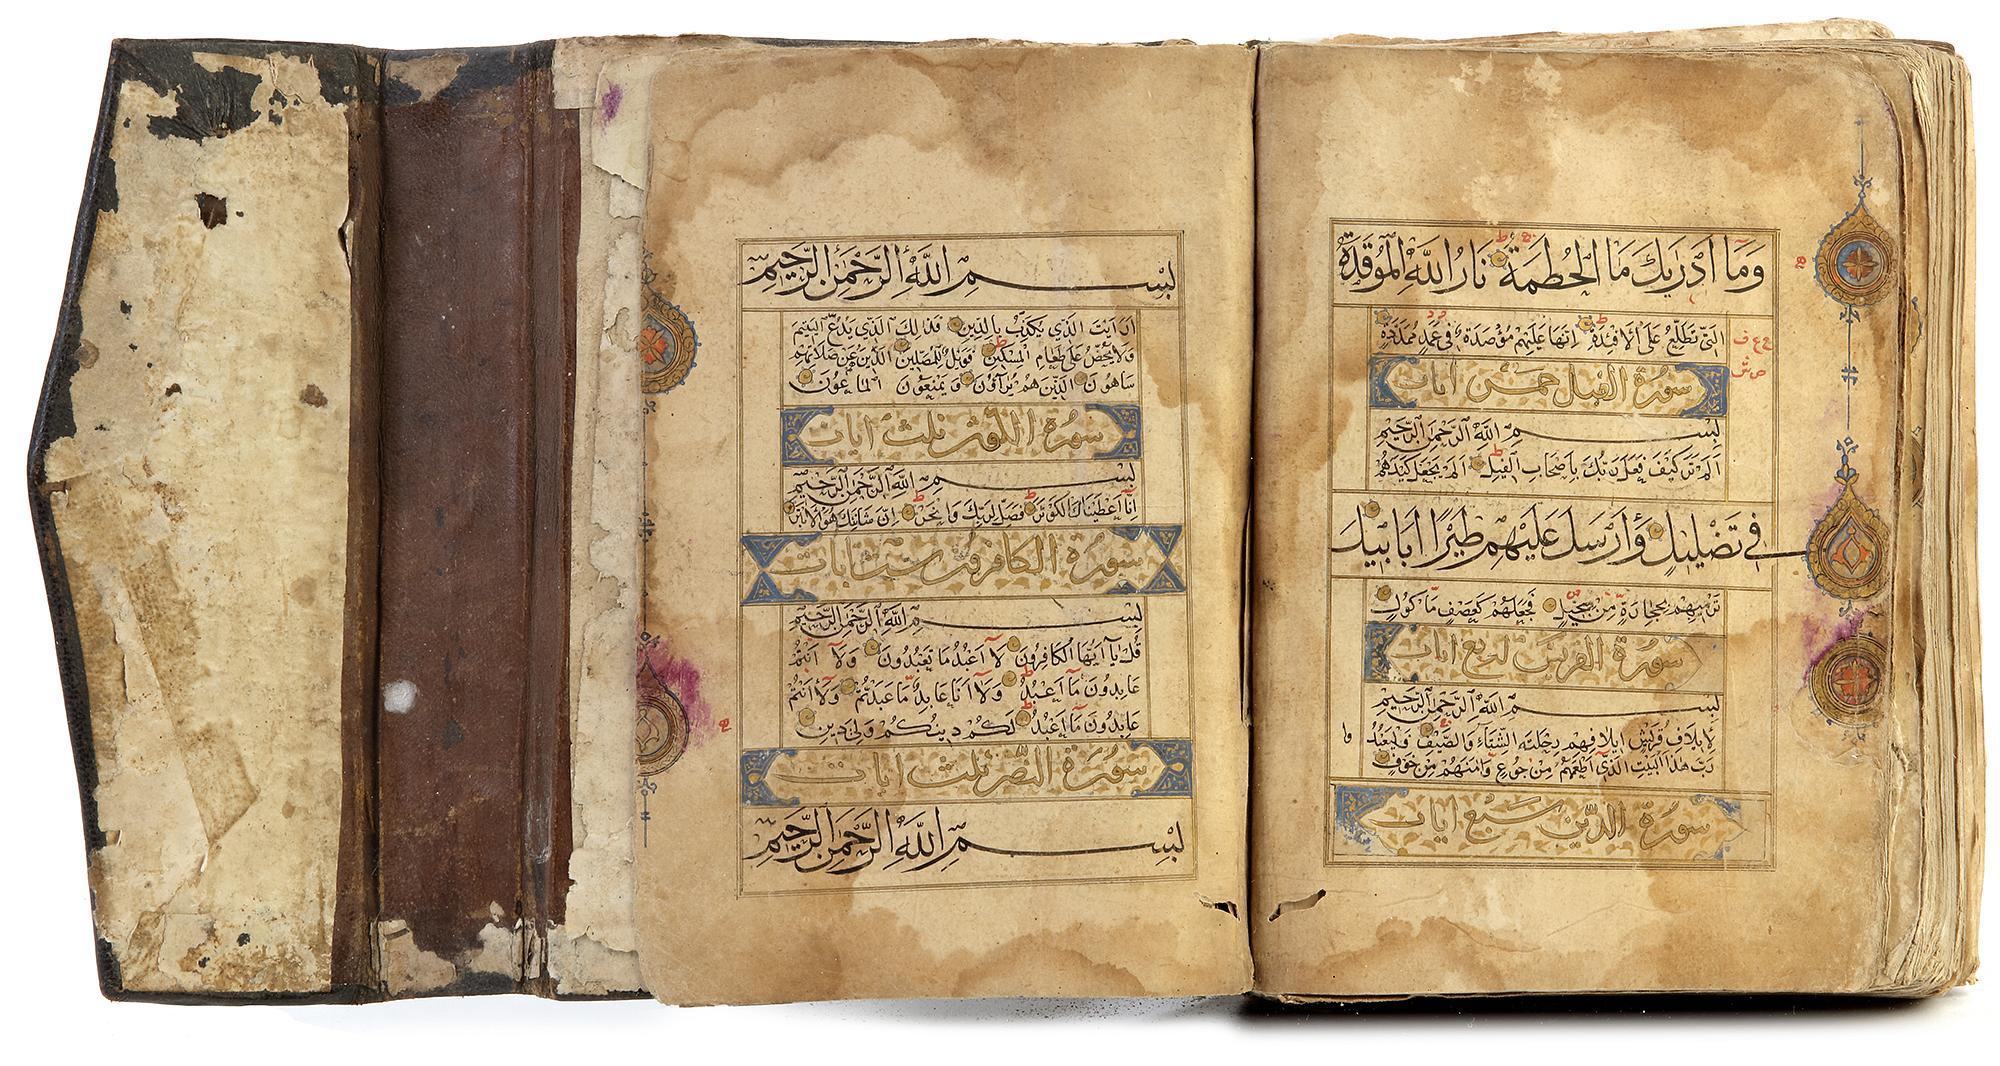 وَمَا أَدْرَيكَ مَا الْحُطَمَةُ نَارُ اللَّهِ الْمُوقَدَةُ
الَّتِي تَطَّلِعُ عَلَى الْأَفْئِدَةِ إِنَّهَا عَلَيْهِمْ مُؤْصَدَةٌ فِي عَمَدٍ مُمَدَّدَةٍ
سورة الفيل خمس آيات
بِسْمِ اللَّهِ الرَّحْمَنِ الرَّحِيمِ
أَلَمْ تَرَ كَيْفَ فَعَلَ رَبُّكَ بِأَصْحَابِ الْفِيلِ أَلَمْ يَجْعَلْ كَيْدَهُمْ
فِي تَضْلِيلٍ وَأَرْسَلَ عَلَيْهِمْ طَيْرًا أَبَابِيلَ
تَرْمِيهِمْ بِحِجَارَةٍ مِنْ سِجِّيلٍ فَجَعَلَهُمْ كَعَصْفٍ مَأْكُولٍ
سورة القريش اربع آيات
بِسْمِ اللَّهِ الرَّحْمَنِ الرَّحِيمِ
لِإِيلَافِ قُرَيْشٍ إِيلَافِهِمْ رِحْلَةَ الشِّتَاءِ وَالصَّيْفِ فَلْيَعْبُدُوا
رَبَّ هَذَا الْبَيْتِ الَّذِي أَطْعَمَهُمْ مِنْ جُوعٍ وَآمَنَهُمْ مِنْ خَوْفٍ
سورة الدين سبع آيات
بِسْمِ اللَّهِ الرَّحْمَنِ الرَّحِيمِ
أَرَأَيْتَ الَّذِي يُكَذِّبُ بِالدِّينِ فَذَلِكَ الَّذِي يَدُعُّ الْيَتِيمَ
وَلَا يَحُضُّ عَلَى طَعَامِ الْمِسْكِينِ فَوَيْلٌ لِلْمُصَلِّينَ الَّذِينَ هُمْ عَنْ صَلَاتِهِمْ
سَاهُونَ الَّذِينَ هُمْ يُرَاؤُنَ وَيَمْنَعُونَ الْمَاعُونَ
سورة الكوثر ثلث آيات
بِسْمِ اللَّهِ الرَّحْمَنِ الرَّحِيمِ
إِنَّا أَعْطَيْنَاكَ الْكَوْثَرَ فَصَلِّ لِرَبِّكَ وَانْحَرْ إِنَّ شَانِئَكَ هُوَ الْأَبْتَرُ
سورة الكافرون ست آيات
بِسْمِ اللَّهِ الرَّحْمَنِ الرَّحِيمِ
قُلْ يَا أَيُّهَا الْكَافِرُونَ لَا أَعْبُدُ مَا تَعْبُدُونَ وَلَا أَنْتُمْ
عَابِدُونَ مَا أَعْبُدُ وَلَا أَنَا عَابِدٌ مَا عَبَدْتُمْ وَلَا أَنْتُمْ
عَابِدُونَ مَا أَعْبُدُ لَكُمْ دِينُكُمْ وَلِيَ دِينِ
سورة النصر ثلث آيات
بِسْمِ اللَّهِ الرَّحْمَنِ الرَّحِيمِ